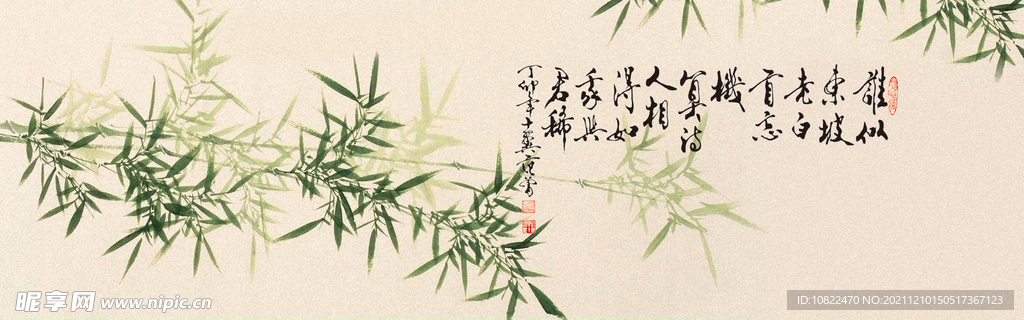 誰似
東坡
老白
首忘
機
算詩
人相
得如
我與
君稀
丁卯年十翼范曾
昵享网 www.nipic.cn
ID:10822470 NO:20211210150517367123